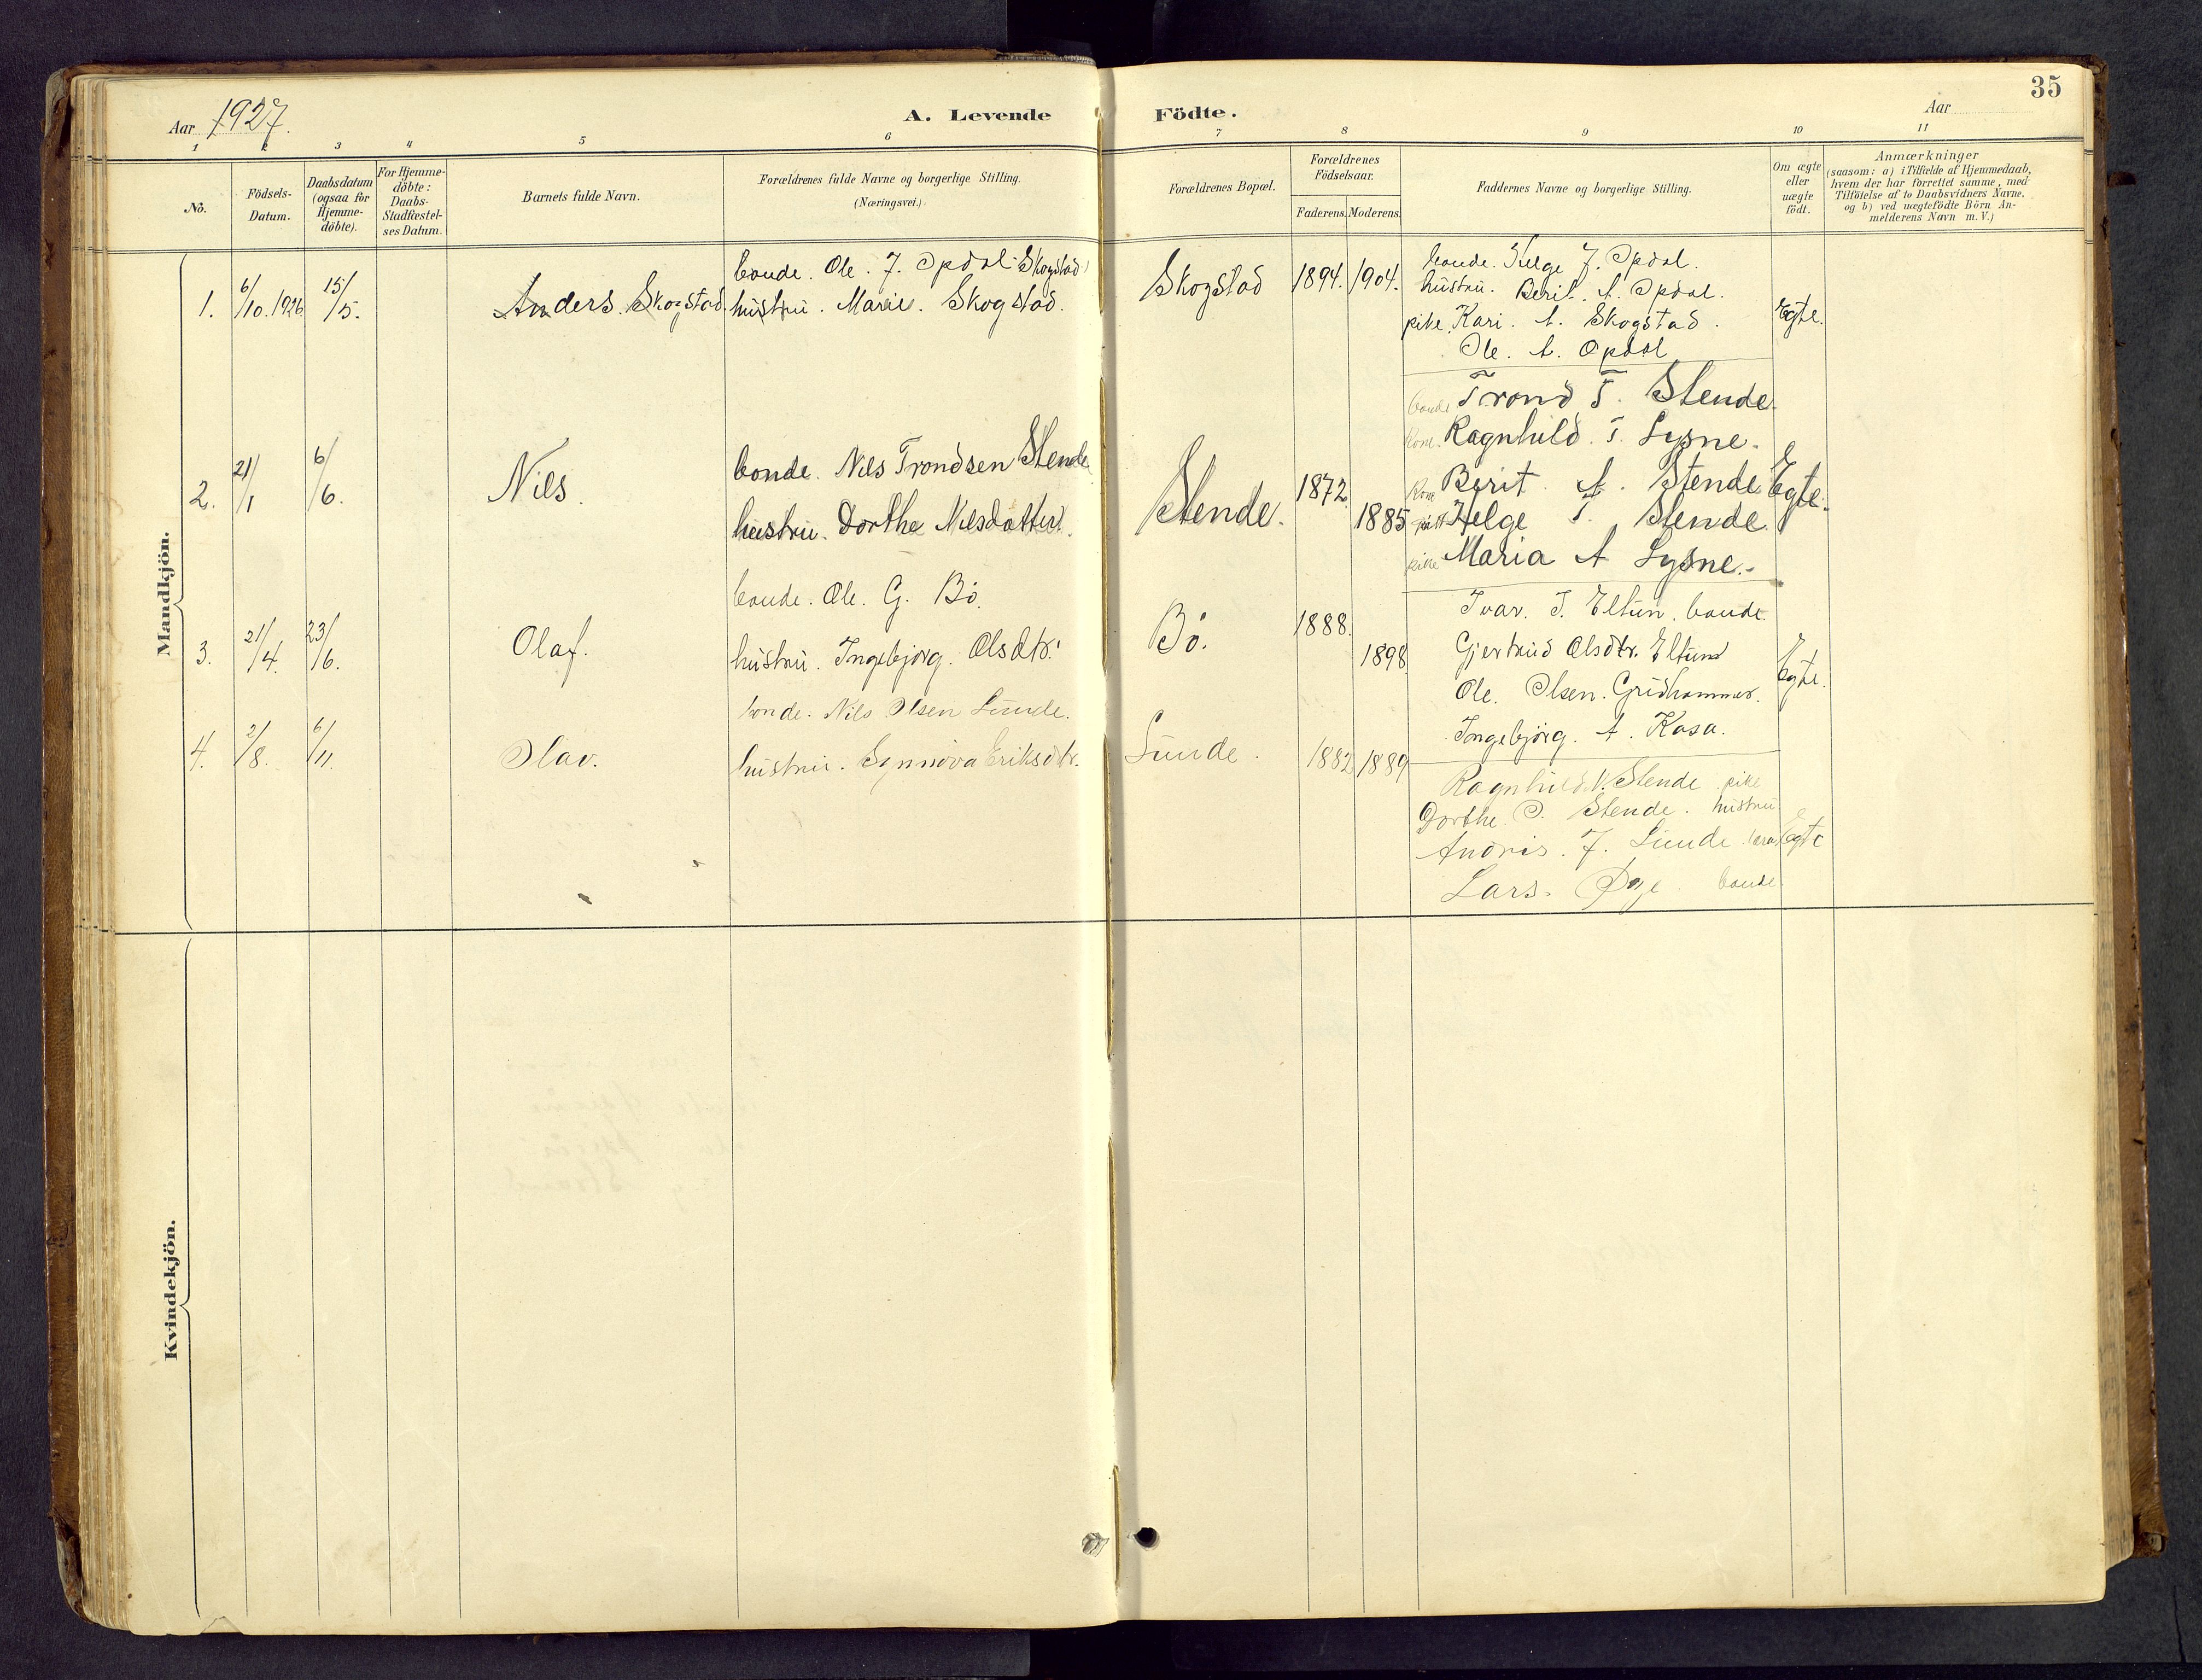 35
Aar 1927.
A. Levende Födte.
Aar
1 2 3 4 5 6 7 8 9 10 11
No.
Födsels-
Datum.
Daabsdatum
(ogsaa for
Hjemme-
döbte).
For Hjemme-
döbte:
Daabs-
Stadfæstel-
ses Datum.
Barnets fulde Navn.
Forældrenes fulde Navne og borgerlige Stilling.
(Næringsvei.)
Forældrenes Bopæl.
Forældrenes
Födselsaar.
Faderens. Moderens.
Faddernes Navne og borgerlige Stilling.
Om ægte
eller
uægte
födt.
Anmærkninger
(saasom: a) i Tilfælde af Hjemmedaab,
hvem der har forrettet samme, med
Tilföielse af to Daabsvidners Navne.
og b) ved uægtefödte Börn An-
melderens Navn m. V.)
Mandkjön.
1. 6/10. 1926 15/5. Anders. Skogstad.
bonde. Ole. J. Opdal Skogstad
hustru. Marie. Skogstad.
Skogstad 1894. 1904.
bonde. Helge J. Opdal.
hustru. Berit. A. Opdal.
pike. Kari. A. Skogstad.
Ole. A. Opdal
Egte.
2. 21/1 6/6. Nils.
bonde. Nils Trondsen Stende
hustru. Dorthe Nilsdatter.
Stende. 1872. 1885
bonde Trond T. Stende.
kone. Ragnhild. T. Lysne.
kone Berit. A. Stende
Helge T. Stende.
pike Maria A Lysne.
Egte.
3. 21/4. 23/6. Olaf.
bonde. Ole. G. Bö.
hustru. Ingebjörg. Olsdtr.
Bö. 1888. 1898
Ivar. J. Eltun. bonde.
Gjertrud Olsdtr. Eltun
Ole. Olsen. Gridhammer.
Ingebjörg. A. Kasa.
Egte.
4. 2/8. 6/11. Olav.
bonde. Nils Olsen Lunde.
hustru. Synnöva Eriksdtr.
Lunde. 1882 1889
Ragnhild N. Stende pike
Dorthe. O. Stende. hustru
Andris. J. Lunde
Lars. Öye bonde.
Egte
Kvindekjön.